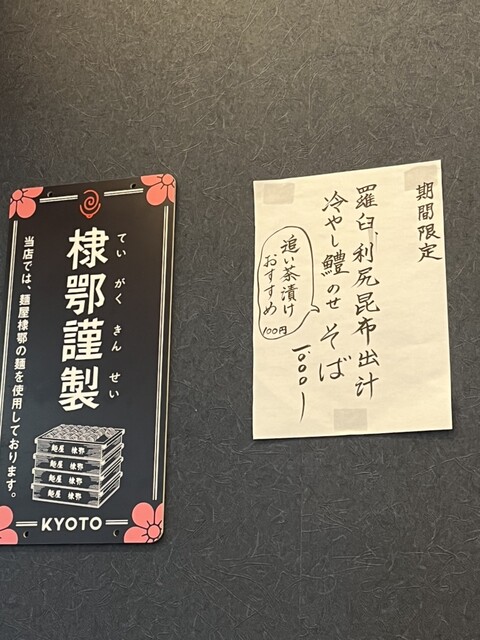 期間限定
羅臼、利尻昆布出汁
冷やし鱧のせそば
1.000ー
追い茶漬け
おすすめ
100円
棣鄂謹製
てい がく きん せい
当店では、麺屋棣鄂の麺を使用しております。
麺屋 棣鄂
麺屋 棣鄂
麺屋 棣鄂
麺屋 棣鄂
KYOTO